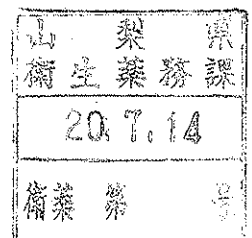 山梨県
衛生薬務課
20.7.14
衛薬第　号